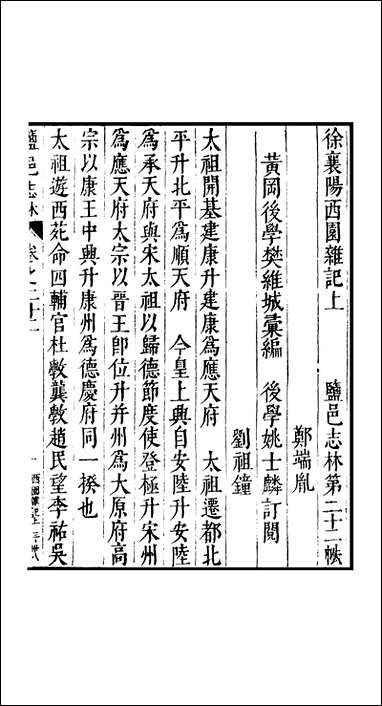 徐襄陽西園雜記上　鹽邑志林第二十二帙
鄭端胤
黃岡後學樊維城彙編　後學姚士麟訂閱
劉祖鐘
太祖開基建康升建康爲應天府　太祖遷都北
平升北平爲順天府　今皇上興自安陸升安陸
爲承天府與宋太祖以歸德節度使登極升宋州
爲應天府太宗以晉王卽位升并州爲大原府高
宗以康王中興升康州爲德慶府同一揆也
太祖遊西苑命四輔官杜斆龔斆趙民望李祐吳
鹽邑志林　卷之二十二　一　西園雜記上